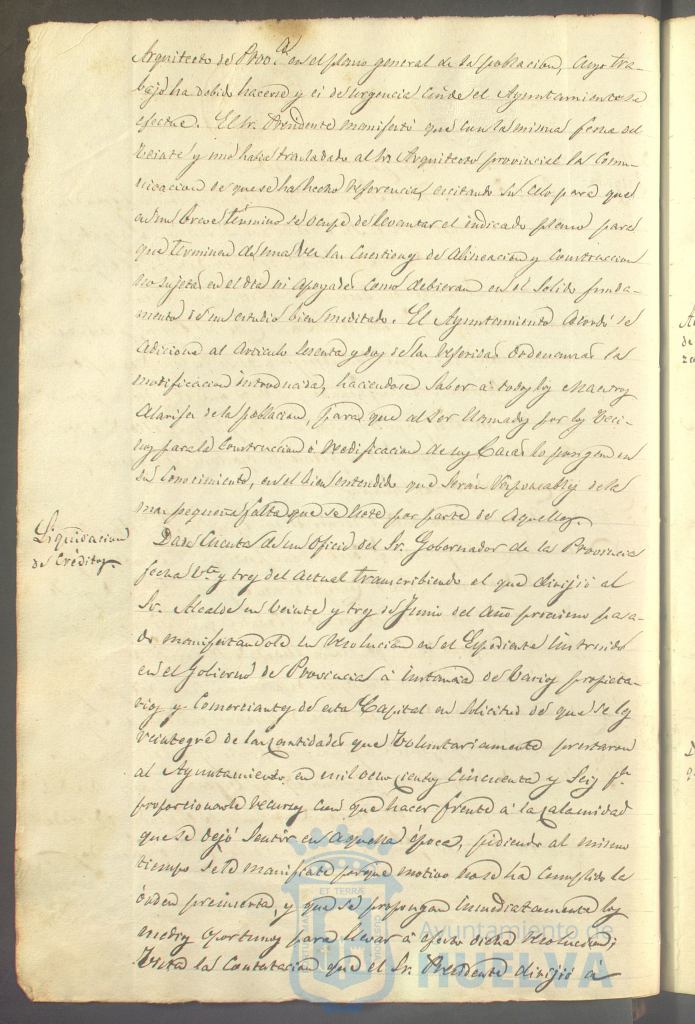 Arquitecto de Prov.ª en el plano general de la poblacion, cuyo tra-
bajo ha debido hacerse y es de urgencia cuide el Ayuntamiento se
efectue. El Sr. Presidente manifestó que con la misma fecha del
veinte y uno habia trasladado al Sr. Arquitecto provincial la Comu-
nicacion de que se ha hecho referencia, escitando su celo para que
en un breve término se ocupe de levantar el indicado plano para
que terminen de una vez las cuestiones de alineacion y construccion
no sujetas en el dia ni apoyadas como debieran en el solido funda-
mento de un estudio bien meditado. El Ayuntamiento acordó se
adicione al articulo sesenta y dos de las referidas ordenanzas la
modificacion introducida, haciendose saber a todos los Maestros
Alarifes de la poblacion, para que al ser llamados por los veci-
nos para la construccion ó reedificacion de sus casas lo pongan en
su conocimiento, en el bien entendido que serán responsables de la
mas pequeña falta que se note por parte de aquellos.
Liquidacion
de Créditos.
Dada cuenta de un oficio del Sr. Gobernador de la Provincia
fecha vte. y tres del actual transcribiendo el que dirijió al
Sr. Alcalde en veinte y tres de Junio del año procsimo pasa-
do manifestandole la resolucion en el Espediente instruido
en el Gobierno de Provincia á instancia de varios propieta-
rios y comerciantes de esta Capital en solicitud de que se les
reintegre de las cantidades que voluntariamente prestaron
al Ayuntamiento en mil ochocientos cincuenta y seis p.ª
proporcionarle recursos con que hacer frente á la calamidad
que se dejó sentir en aquella época, pidiendo al mismo
tiempo se le manifieste porque motivo no se ha cumplido la
órden preinserta, y que se propongan inmediatamente los
medios oportunos para llevar á efecto dicha resolucion;
Vista la contestacion que el Sr. Presidente dirijió a
ET TERRA
Ayuntamiento de
HUELVA